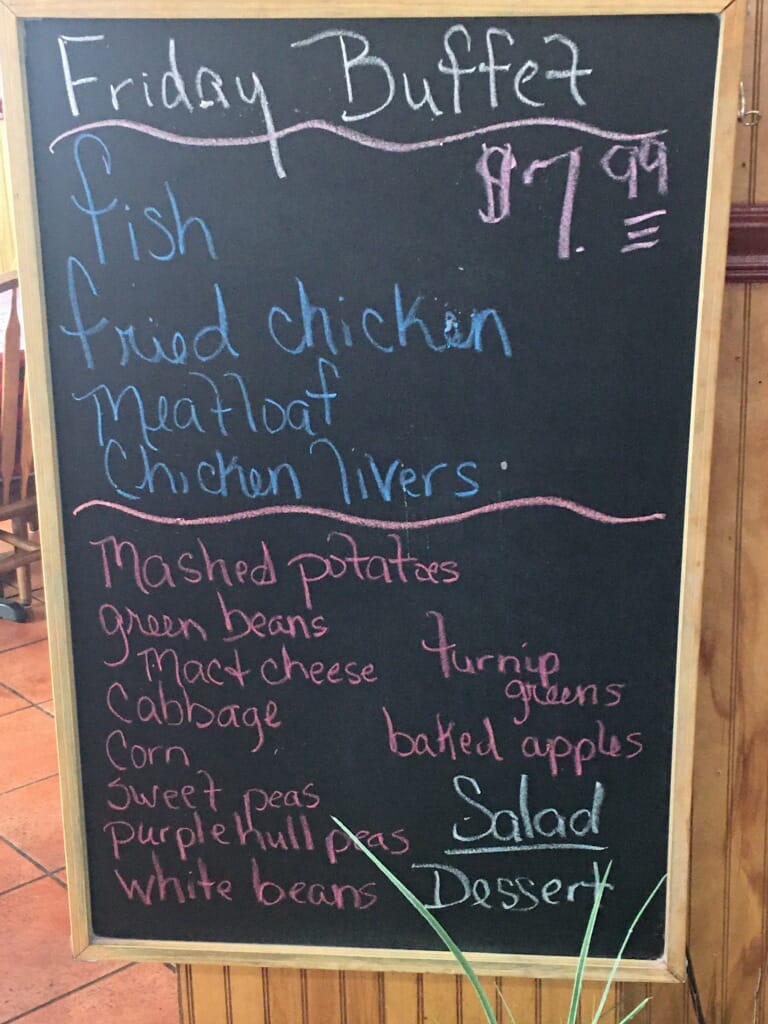 Friday Buffet
$7.99
fish
fried chicken
Meatloaf
Chicken livers
Mashed potatoes
green beans
Mac + cheese
Cabbage
Corn
sweet peas
purple hull peas
white beans
turnip
greens
baked apples
Salad
Dessert